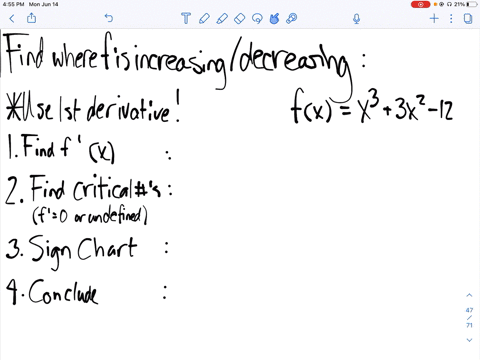 4:55 PM Mon Jun 14
21%
Find where f is increasing/decreasing :
*Use 1st derivative!
f(x) = x³ + 3x² - 12
1. Find f'(x) :
2. Find critical #'s :
(f'=0 or undefined)
3. Sign Chart :
4. Conclude :
47
/
71